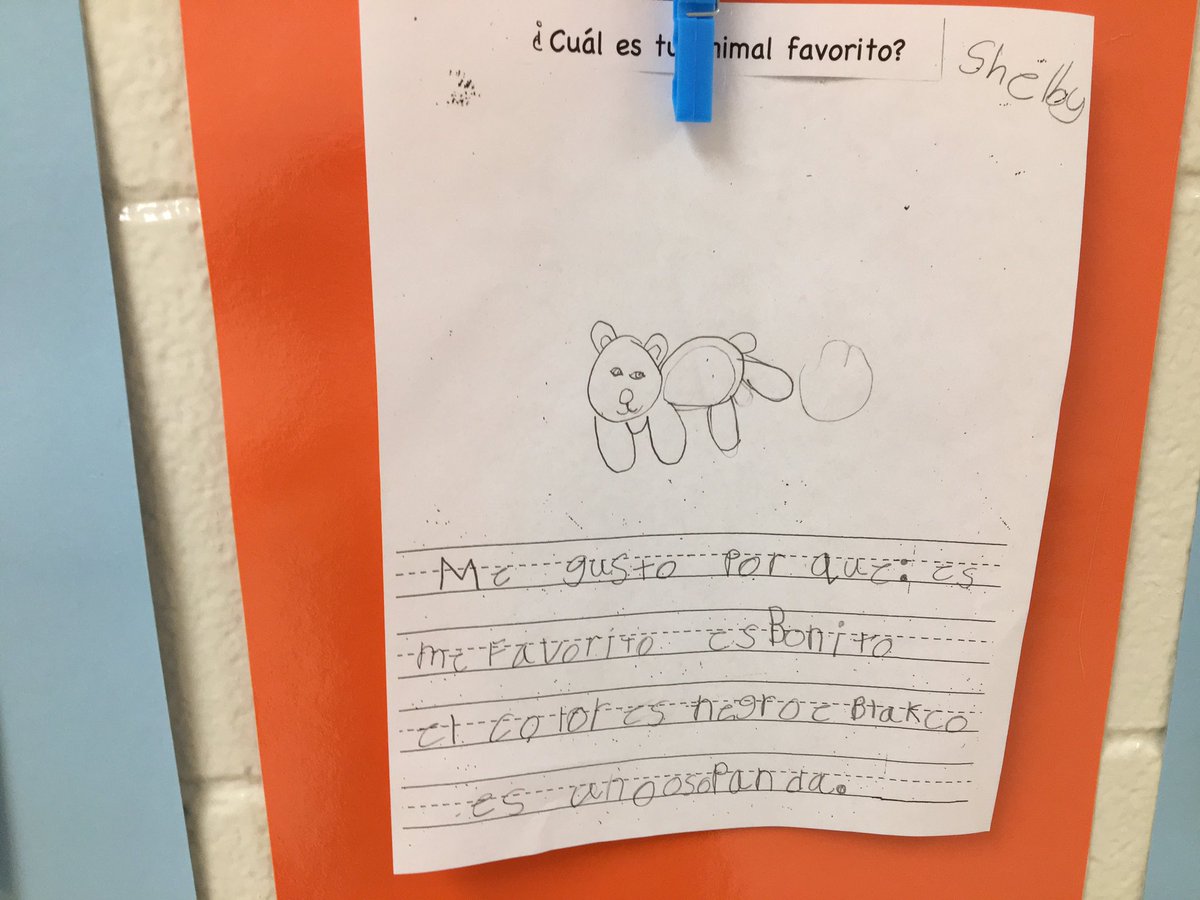 ¿Cuál es tu animal favorito?
Shelby
Me gusto por que: es
me Favorito es Bonito
el color es negro e Blakco
es uno oso Panda.